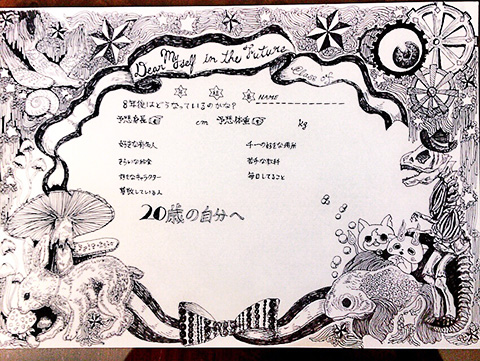 Dear Myself in the Future
Class of
8年後はどうなっているのかな? NAME
予想身長 cm 予想体重 kg
好きな有名人
きらいな給食
好きなキャラクター
尊敬している人
千一の好きな場所
苦手な教科
毎日してること
20歳の自分へ